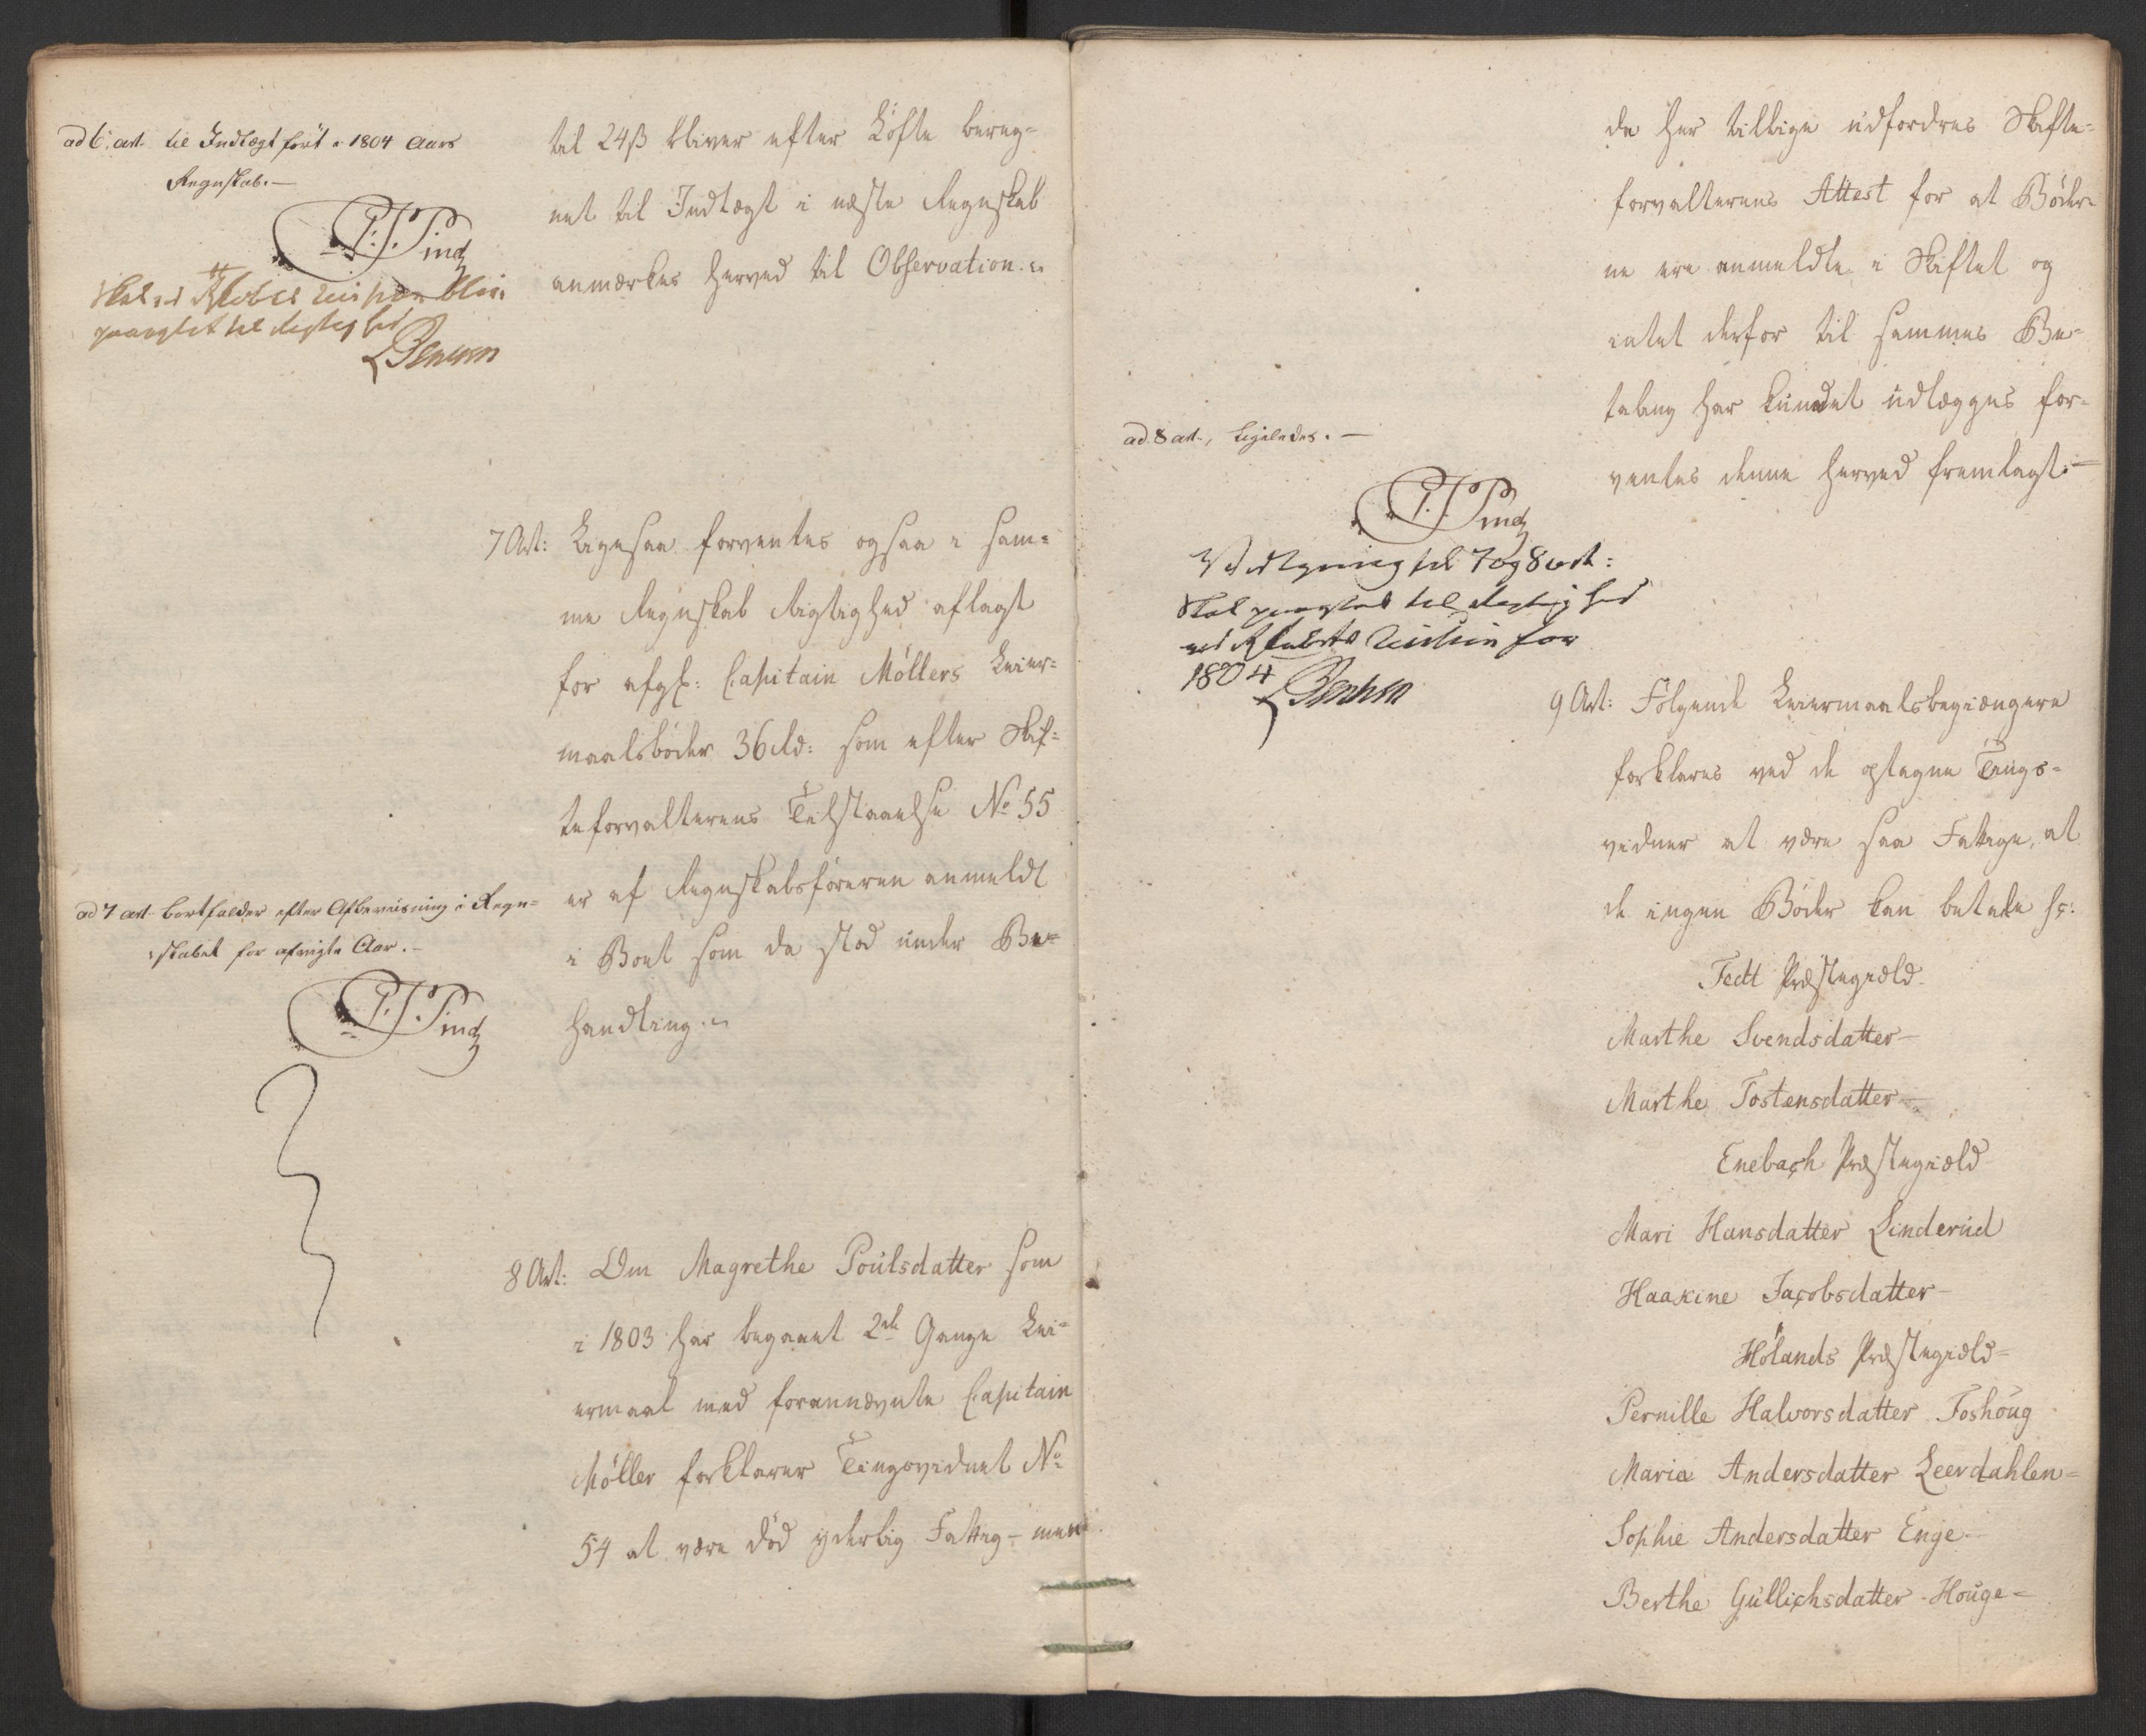 ad 6 art. til Indtægt ført i 1804 Aars
Regnskab. —
P. S. Pind
Skal ved blive
paaagtet til Rigtighed
Bentzen
til 24 ß bliver efter Løfte bereg-
net til Indtægt i næste Regnskab
anmærkes herved til Observation.
7 Art: Ligesaa forventes ogsaa i sam-
me Regnskab Rigtighed aflagt
for afg: Capitain Møllers Leier-
maalsbøder 36 Rd: som efter Skif-
teforvalterens Tilstaaelse No 55
er af Regnskabsføreren anmeldt
i Boet som da stod under Be-
handling.
ad 7 art. bortfalder efter Afbeviisning i Regn-
skabet for afvigte Aar. —
P. S. Pind
8 Art: Om Magrethe Poulsdatter som
i 1803 har begaaet 2de Gange Lei-
ermaal med forannævnte Capitain
Møller forklarer Tingsvidnet No
54 at være død yderlig Fattig — men
da her tillige udfordres Skifte-
forvalterens Attest for at Bøder-
ne ere anmeldte i Skiftet og
intet derfor til sammes Be-
taling har kundet udlægges for-
ventes denne herved fremlagt. —
ad 8 art., ligeledes. —
P. S. Pind
til 7 og 8 art:
Skal paaagtes til Rigtighed
ved for
1804
Bentzen
9 Art: Følgende Leiermaalsbegiængere
forklares ved de optagne Tings-
vidner at være saa Fattige, at
de ingen Bøder kan betale sc:
Fedt Præstegield
Marthe Svendsdatter —
Marthe Tostensdatter —
Enebach Præstegield
Mari Hansdatter Linderud
Haakine Jacobsdatter —
Hølands Præstegield =
Pernille Halvorsdatter Foshoug
Maria Andersdatter Leerdahlen =
Sophie Andersdatter Enge —
Berthe Gullichsdatter Houge =